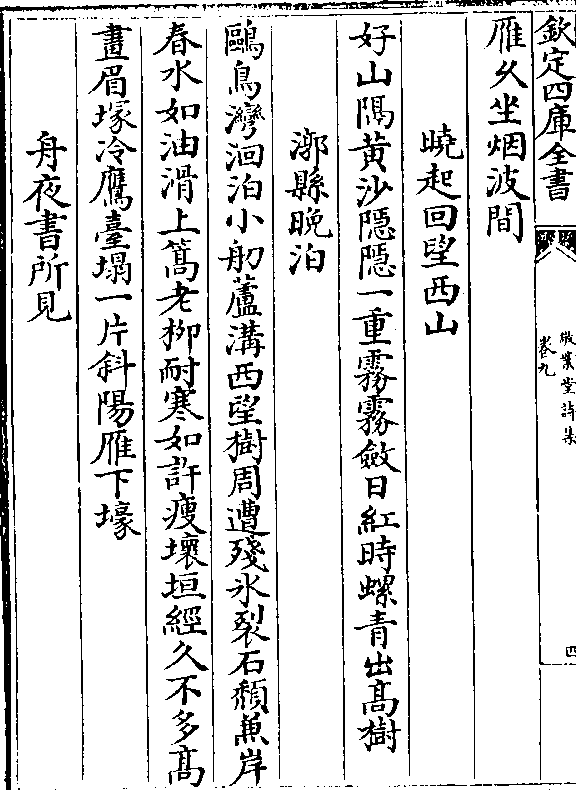 欽定四庫全書
敬業堂詩集
卷九
四
雁久坐烟波間
曉起回望西山
好山隔黄沙隱隱一重霧霧斂日紅時螺青出髙樹
漷縣晚泊
鷗鳥灣洄泊小舠蘆溝西望樹周遭殘氷裂石頹兼岸
春水如油滑上篙老栁耐寒如許瘦壞垣經久不多髙
畫眉塜冷鷹臺塌一片斜陽雁下壕
舟夜書所見